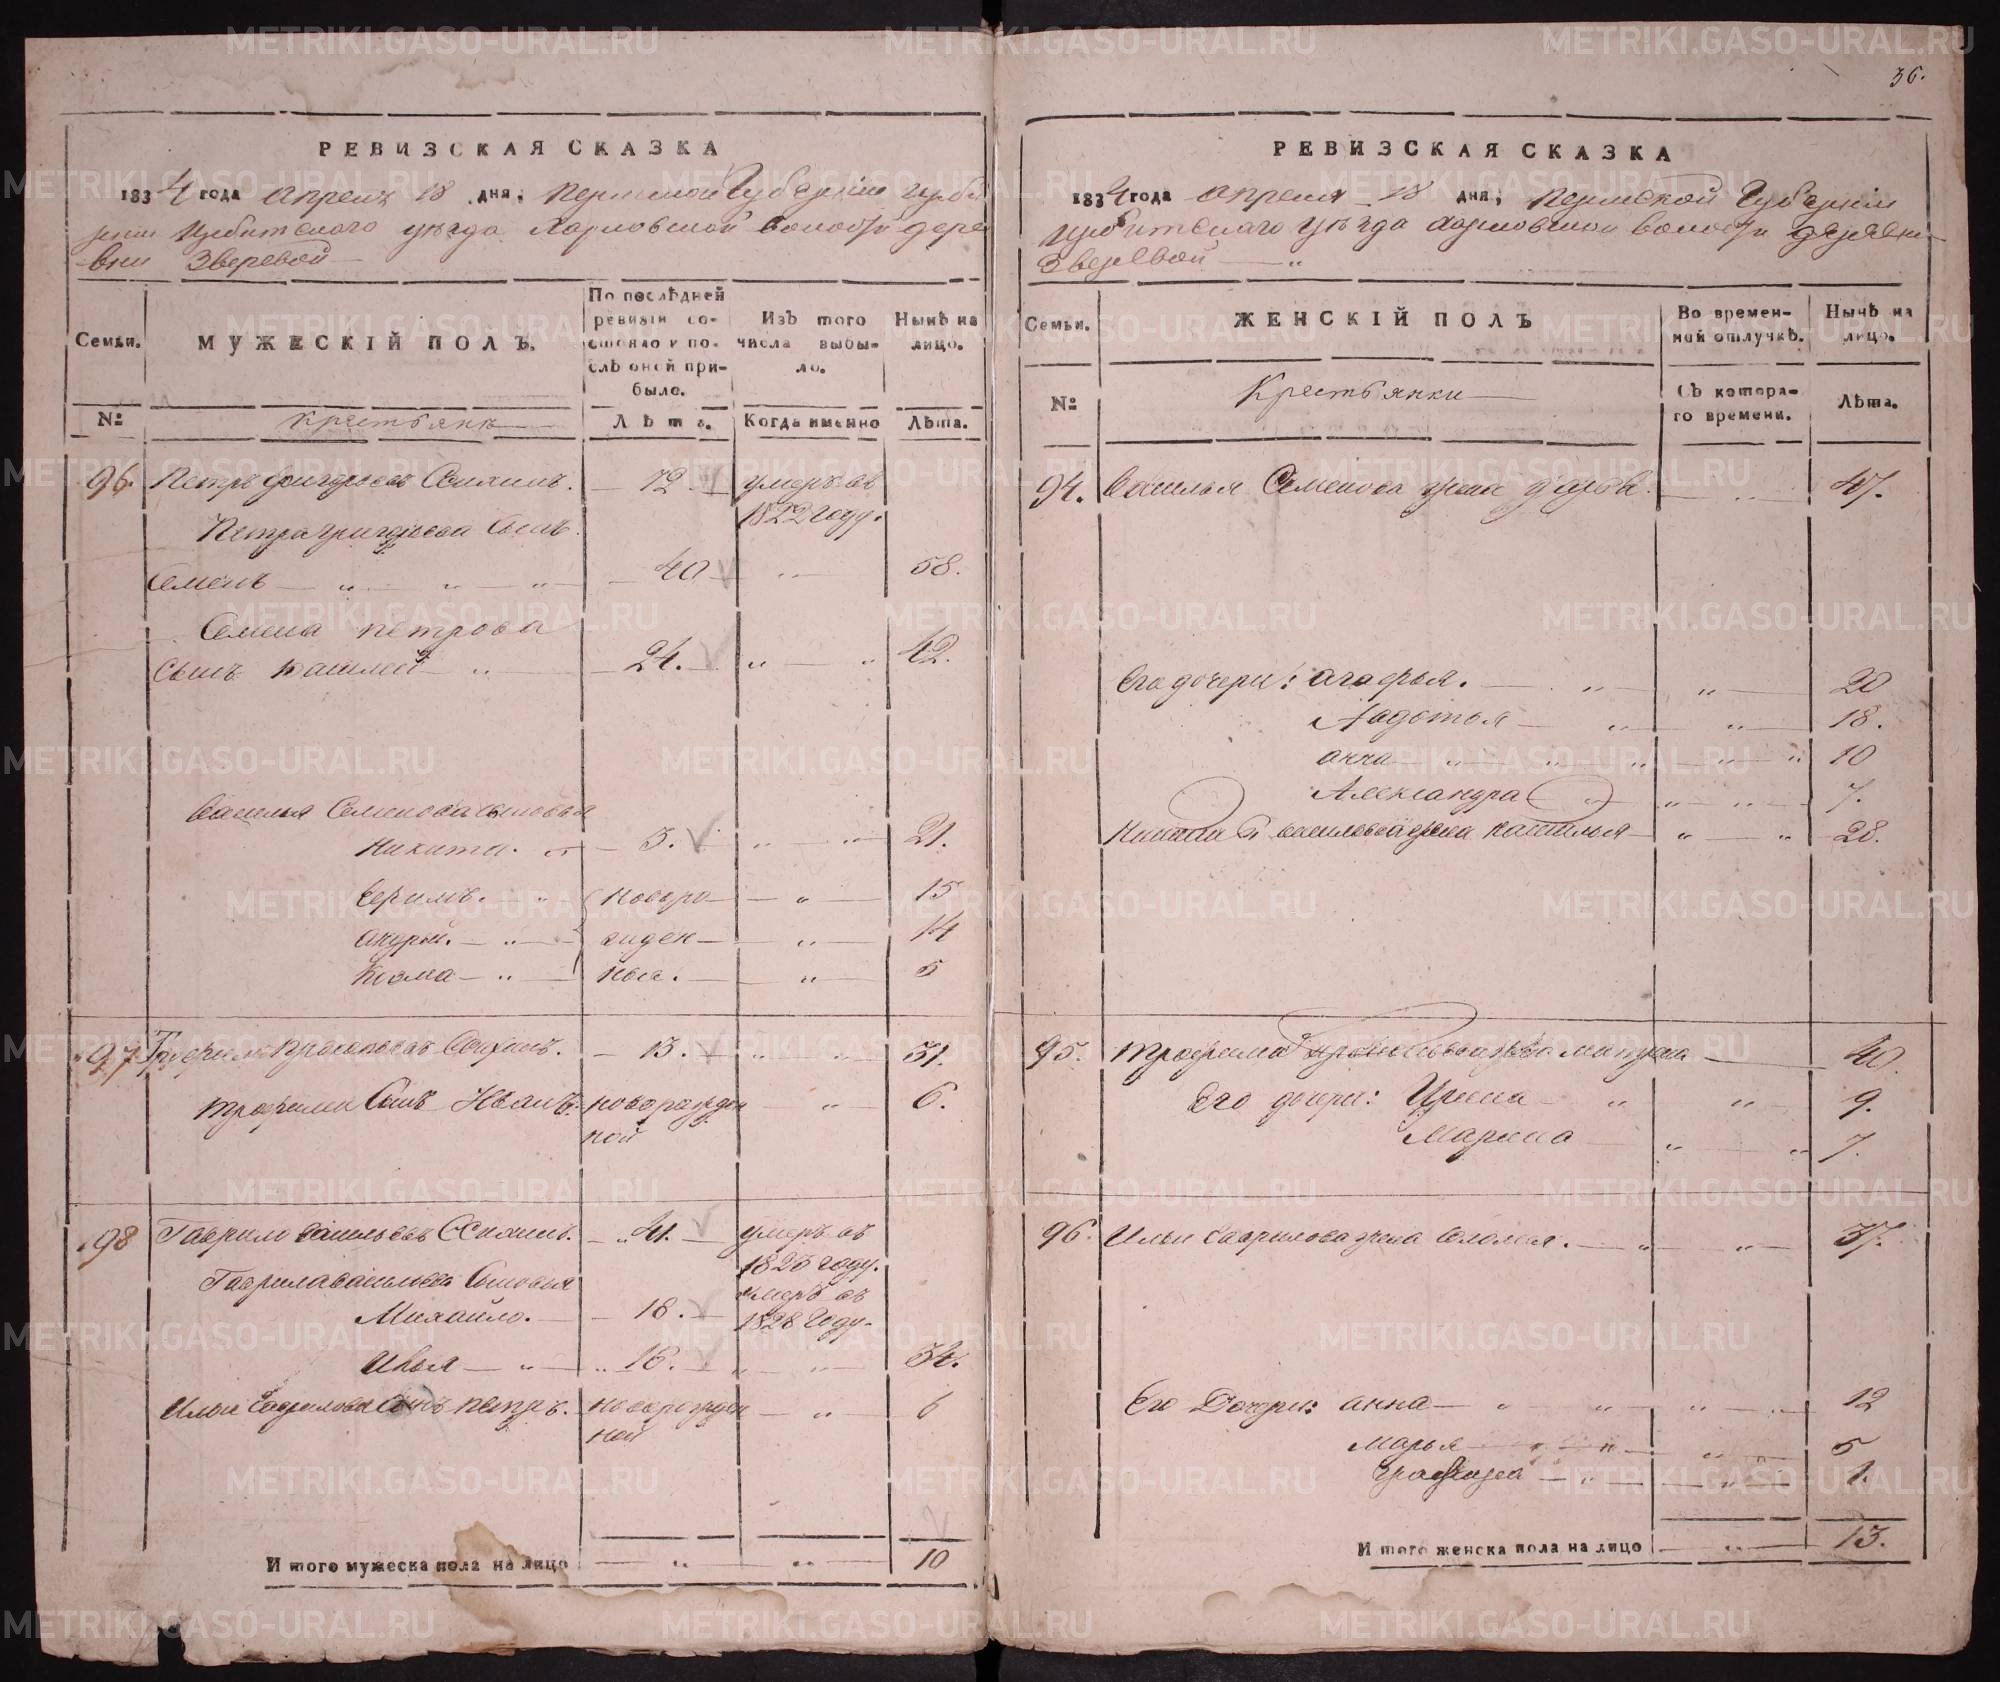 36.
РЕВИЗСКАЯ СКАЗКА
1834 года апреля 18 дня, Пермской Губернiи Ирби
Ирбитскаго уѣзда Харловской волости дере
вни Зверевой
Семьи.
МУЖЕСКIЙ ПОЛЪ.
По послѣдней ревизiи состояло и послѣ оной прибыло.
Изъ того числа выбыло.
Нынѣ на лицо.
№
Крестьянѣ
Лѣта.
Когда именно
Лѣта.
96. Петръ Григорьевъ 72 умеръ въ
1822 году.
Петра Григорьева Сынъ
Семенъ 40 58.
Семена Петрова
сынъ Василей 24. 42.
Василья Семенова сыновья
Никита. 3. 21.
Ефимъ. новоро 15
Андрей. жден 14
Козма ные. 5
97. Трофимъ Прокопьевъ 13. 31.
Трофима Сынъ Иванъ новорожден 6.
ной
98 Гаврило Васильевъ 41. умеръ въ
1825 году.
Гаврила Васильева Сыновья
Михайло. 18. умеръ въ
1828 Году.
Илья 16. 34.
Ильи Гаврилова Сынъ Петръ. новорожден 6
ной
Итого мужеска пола на лицо 10
РЕВИЗСКАЯ СКАЗКА
1834 года апреля 18 дня, Пермской Губернiи
Ирбитскаго уѣзда Харловской волости деревни
Зверевой
Семьи.
ЖЕНСКIЙ ПОЛЪ
Во временной отлучкѣ.
Нынѣ на лицо.
№
Крестьянки
Съ котораго времени.
Лѣта.
94. Василья Семенова жена Дарья. 47.
Его дочери: Агафья. 20
Авдотья 18.
Анна 10
Александра 7.
Никиты Васильева жена 28.
95. Трофима Прокопьева жена 40.
Его дочери: Ирина 9.
Марина 7.
96. Ильи Гаврилова жена Соломея. 37.
Его Дочери: Анна 12
Марья 5
1.
Итого женска пола на лицо 13.
METRIKI.GASO-URAL.RU